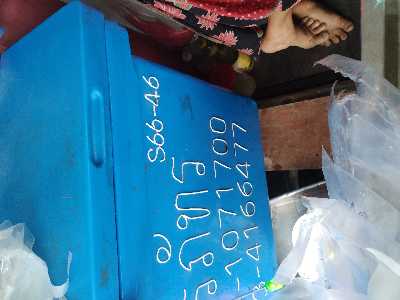 S66-46
รภัทร
-1071700
-4166477